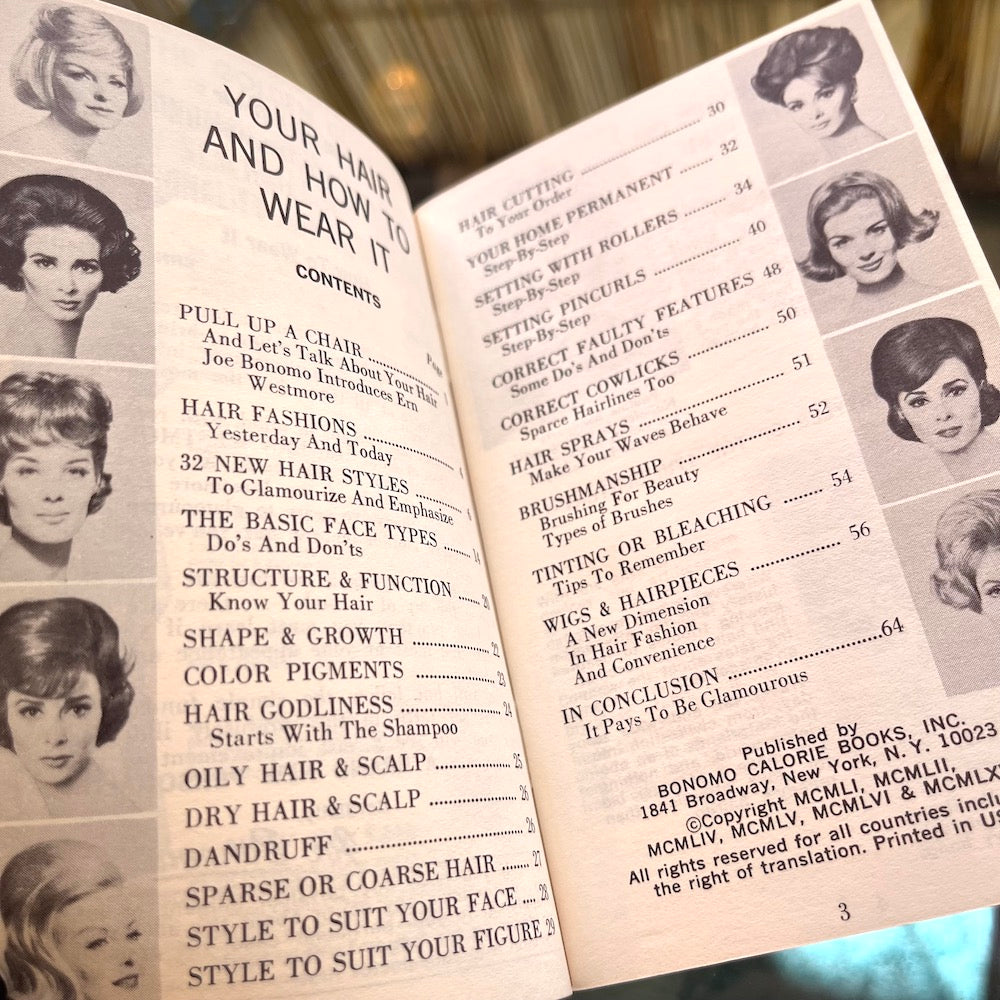 YOUR HAIR
AND HOW TO
WEAR IT
CONTENTS
Page
PULL UP A CHAIR .......... 1
And Let's Talk About Your Hair
Joe Bonomo Introduces Ern
Westmore
HAIR FASHIONS ..........
Yesterday And Today
32 NEW HAIR STYLES .......... 6
To Glamourize And Emphasize
THE BASIC FACE TYPES ......... 14
Do's And Don'ts
STRUCTURE & FUNCTION ....... 20
Know Your Hair
SHAPE & GROWTH .............. 22
COLOR PIGMENTS .............. 23
HAIR GODLINESS ................ 24
Starts With The Shampoo
OILY HAIR & SCALP ............. 25
DRY HAIR & SCALP ............... 26
DANDRUFF ........................... 26
SPARSE OR COARSE HAIR ........ 27
STYLE TO SUIT YOUR FACE .... 28
STYLE TO SUIT YOUR FIGURE 29
HAIR CUTTING ............................ 30
To Your Order
YOUR HOME PERMANENT ....... 32
Step-By-Step
SETTING WITH ROLLERS ........ 34
Step-By-Step
SETTING PINCURLS .................. 40
Step-By-Step
CORRECT FAULTY FEATURES 48
Some Do's And Don'ts
CORRECT COWLICKS ................ 50
Sparce Hairlines Too
HAIR SPRAYS ............................ 51
Make Your Waves Behave
BRUSHMANSHIP ........................ 52
Brushing For Beauty
Types of Brushes
TINTING OR BLEACHING ........ 54
Tips To Remember
WIGS & HAIRPIECES .................. 56
A New Dimension
In Hair Fashion
And Convenience
IN CONCLUSION ........................64
It Pays To Be Glamourous
Published by
BONOMO CALORIE BOOKS, INC.
1841 Broadway, New York, N. Y. 10023
©Copyright MCMLI, MCMLII,
MCMLIV, MCMLV, MCMLVI &
All rights reserved for all countries
the right of translation. Printed in
3